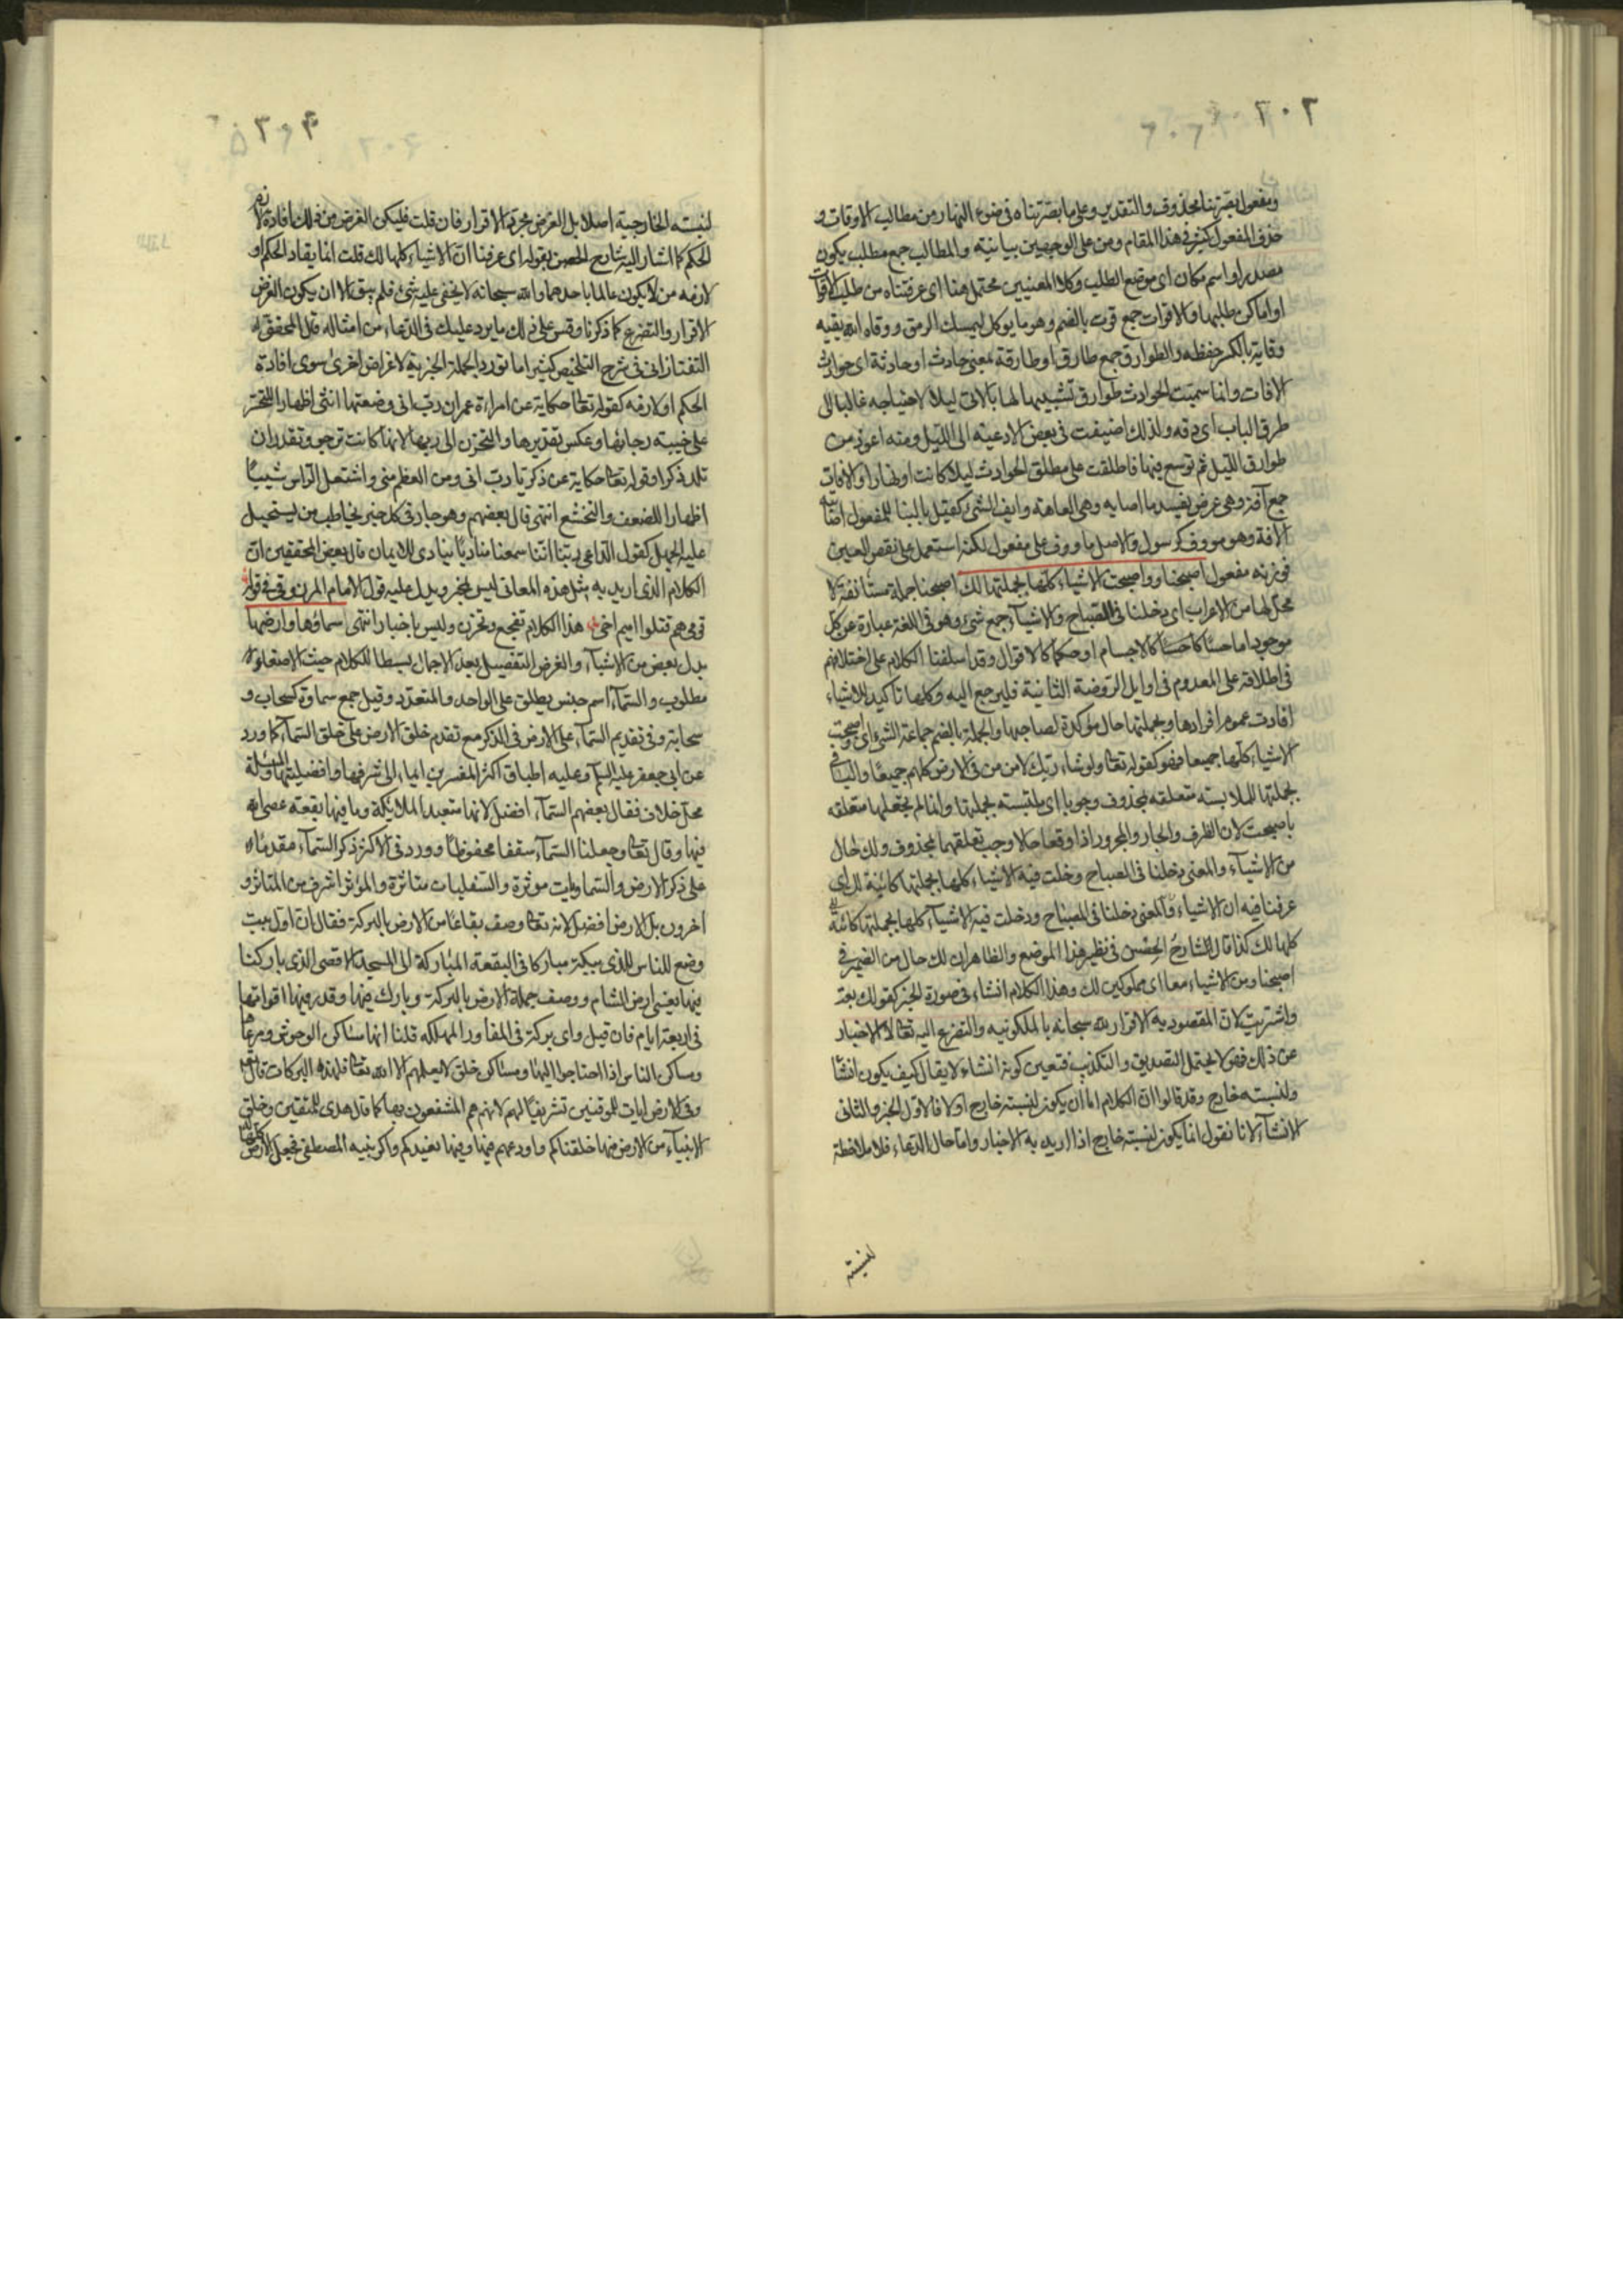 ٢٠٢
ومفعول بصرتنا محذوف والتقدير وعلى ما بصرتناه في ضوء النهار من مطالب الاوقات و
حذف المفعول كثير في هذا المقام ومن على الوجهين بيانية والمطالب جمع مطلب يكون
مصدرا واسم مكان اى موضع الطلب وكلا المعنيين محتمل هنا اى عرفتناه من طلب الاقوات
او اماكن طلبها والاقوات جمع قوت بالضم وهو ما يوكل ليمسك الرمق ووقاه الله يقيه
وقاية بالكسر حفظه والطوارق جمع طارق او طارقة بمعنى حادث او حادثة اى حوادث
الافات وانما سميت الحوادث طوارق تشبيها لها بالاتى ليلا لاحتياجه غالبا الى
طرق الباب اى دقه ولذلك اضيفت في بعض الادعية الى الليل ومنه اعوذ من
طوارق الليل ثم توسع فيها فاطلقت على مطلق الحوادث ليلا كانت او نهارا والافات
جمع آفة وهي عرض يفسد ما اصابه وهي العاهة وايف الشئ كقيل بالبنا للمفعول اصابته
الآفة وهو مووف كرسول والاصل ماووف على مفعول لكنه استعمل على نقص العين
فوزنه مفول اصبحنا واصبحت الاشياء كلها بجملتها لك اصبحنا جملة مستانفة لا
محل لها من الاعراب اى دخلنا في الصباح والاشياء جمع شئ وهو في اللغة عبارة عن كل
موجود اما حسا كالاجسام او حكما كالاقوال وقد اسلفنا الكلام على اختلافهم
في اطلاقه على المعدوم في اوايل الروضة الثانية فليرجع اليه وكلها تاكيد للاشياء
افادت عموم افرادها وبجملتها حال موكدة لصاحبها والجملة بالضم جماعة الشئ اى اصبحت
الاشياء كلها جميعا فهو كقوله تعالى ولو شاء ربك لامن من في الارض كلهم جميعا والباء في
بجملتها للملابسة متعلقه بمحذوف وجوبا اى ملتبسة بجملتها وانما لم نجعلها متعلقه
باصبحت لان الظرف والجار والمجرور اذا وقعا حالا وجب تعلقهما بمحذوف ولك حال
من الاشياء والمعنى دخلنا في الصباح ودخلت فيه الاشياء كلها بجملتها كائنة لك اى
عرفنا فيه ان الاشياء والمعنى دخلنا في الصباح ودخلت فيه الاشياء كلها بجملتها كائنة
كلها لك كذا قال الشارح الحصن في نظير هذا الموضع والظاهر ان لك حال من الضمير في
اصبحنا ومن الاشياء معا اى مملوكين لك وهذا الكلام انشاء في صورة الخبر كقولك بعت
واشتريت لان المقصود به الاقرار لله سبحانه بالملكوتيه والتضرع اليه تعالى لا الاخبار
عن ذلك فهو لا يحتمل التصديق والتكذيب فتعين كونه انشاء لا يقال كيف يكون انشأ
ولنسبته خارج وقد قالوا ان الكلام اما ان يكون لنسبته خارج او لا فالاول الخبر والثانى
الانشآء لانا نقول انما يكون لنسبته خارج اذا اريد به الاخبار واما حال الدعاء فلا ملاحظة
لنسبته
لنسبته الخارجية اصلا بل الغرض مجرد الاقرار فان قلت فليكن الغرض من ذلك افادة لازم
الحكم كما اشار اليه شارح الحصن بقوله اى عرفنا ان الاشياء كلها لك قلت انما يفاد الحكم او
لازمه من لا يكون عالما باحدهما والله سبحانه لا يخفى عليه شئ فلم يبق الا ان يكون الغرض
الاقرار والتضرع كما ذكرنا وقس على ذلك ما يرد عليك في الدعاء من امثاله قال المحقق
التفتازاني في شرح التلخيص كثيرا ما تورد الجملة الخبرية لاغراض اخرى سوى افادة
الحكم او لازمه كقوله تعالى حكاية عن امراءة عمران رب انى وضعتها انثى اظهارا للتحسر
على خيبة رجائها وعكس تقديرها والتحزن الى ربها لانها كانت ترجو وتقدر ان
تلد ذكرا وقوله تعالى حكاية عن زكريا رب انى وهن العظم منى واشتعل الراس شيبا
اظهارا للضعف والتخشع انتهى قال بعضهم وهو جار في كل خبر يخاطب به من يستحيل
عليه الجهل كقول الداعى ربنا اننا سمعنا مناديا ينادى للايمان قال بعض المحققين ان
الكلام الذى اريد به مثل هذه المعانى ليس بخبر ويدل عليه قول الامام المرزوقى في قوله
قومى هم قتلوا اميم اخى هذا الكلام تفجع وتحزن وليس باخبار انتهى سماؤها وارضها
بدل بعض من الاشيآء والغرض التفصيل بعد الاجمال بسطا للكلام حيث الاصغاء
مطلوب والسمآء اسم جنس يطلق على الواحد والمتعدد وقيل جمع سماوة كسحاب و
سحابة وفي تقديم السمآء على الارض في الذكر مع تقدم خلق الارض على خلق السمآء كما ورد
عن ابى جعفر عليه السلم وعليه اطباق اكثر المفسرين ايماء الى شرفها وافضليتها والمسئلة
محل خلاف فقال بعضهم السمآء افضل لانها متعبد الملائكة وما فيها بقعة عصى الله
فيها وقال تعالى وجعلنا السمآء سقفا محفوظا وورد في الاكثر ذكر السمآء مقدما
على ذكر الارض والسماويات موثرة والسفليات متاثرة والمؤثر اشرف من المتاثر و
اخرون بل الارض افضل لانه تعالى وصف بقاعا من الارض بالبركة فقال ان اول بيت
وضع للناس للذى ببكة مباركا في البقعة المباركة الى المسجد الاقصى الذى باركنا
فيها يعنى ارض الشام ووصف جملة الارض بالبركة وبارك فيها وقدر فيها اقواتها
في اربعة ايام فان قيل واى بركة في المفاوز المهلكه قلنا انها مساكن الوحوش ومرعاها
ومساكن الناس اذا احتاجوا اليها ومساكن خلق لا يعلمهم الا الله تعالى فلهذه البركات قال تعالى
وفي الارض ايات للموقنين تشريفا لهم لانهم هم المنتفعون بها كما قال هدى للمتقين وخلق
الانبيآء من الارض منها خلقناكم واودعهم فيها وفيها نعيدكم واكرم نبيه المصطفى فجعل الارض كلها له